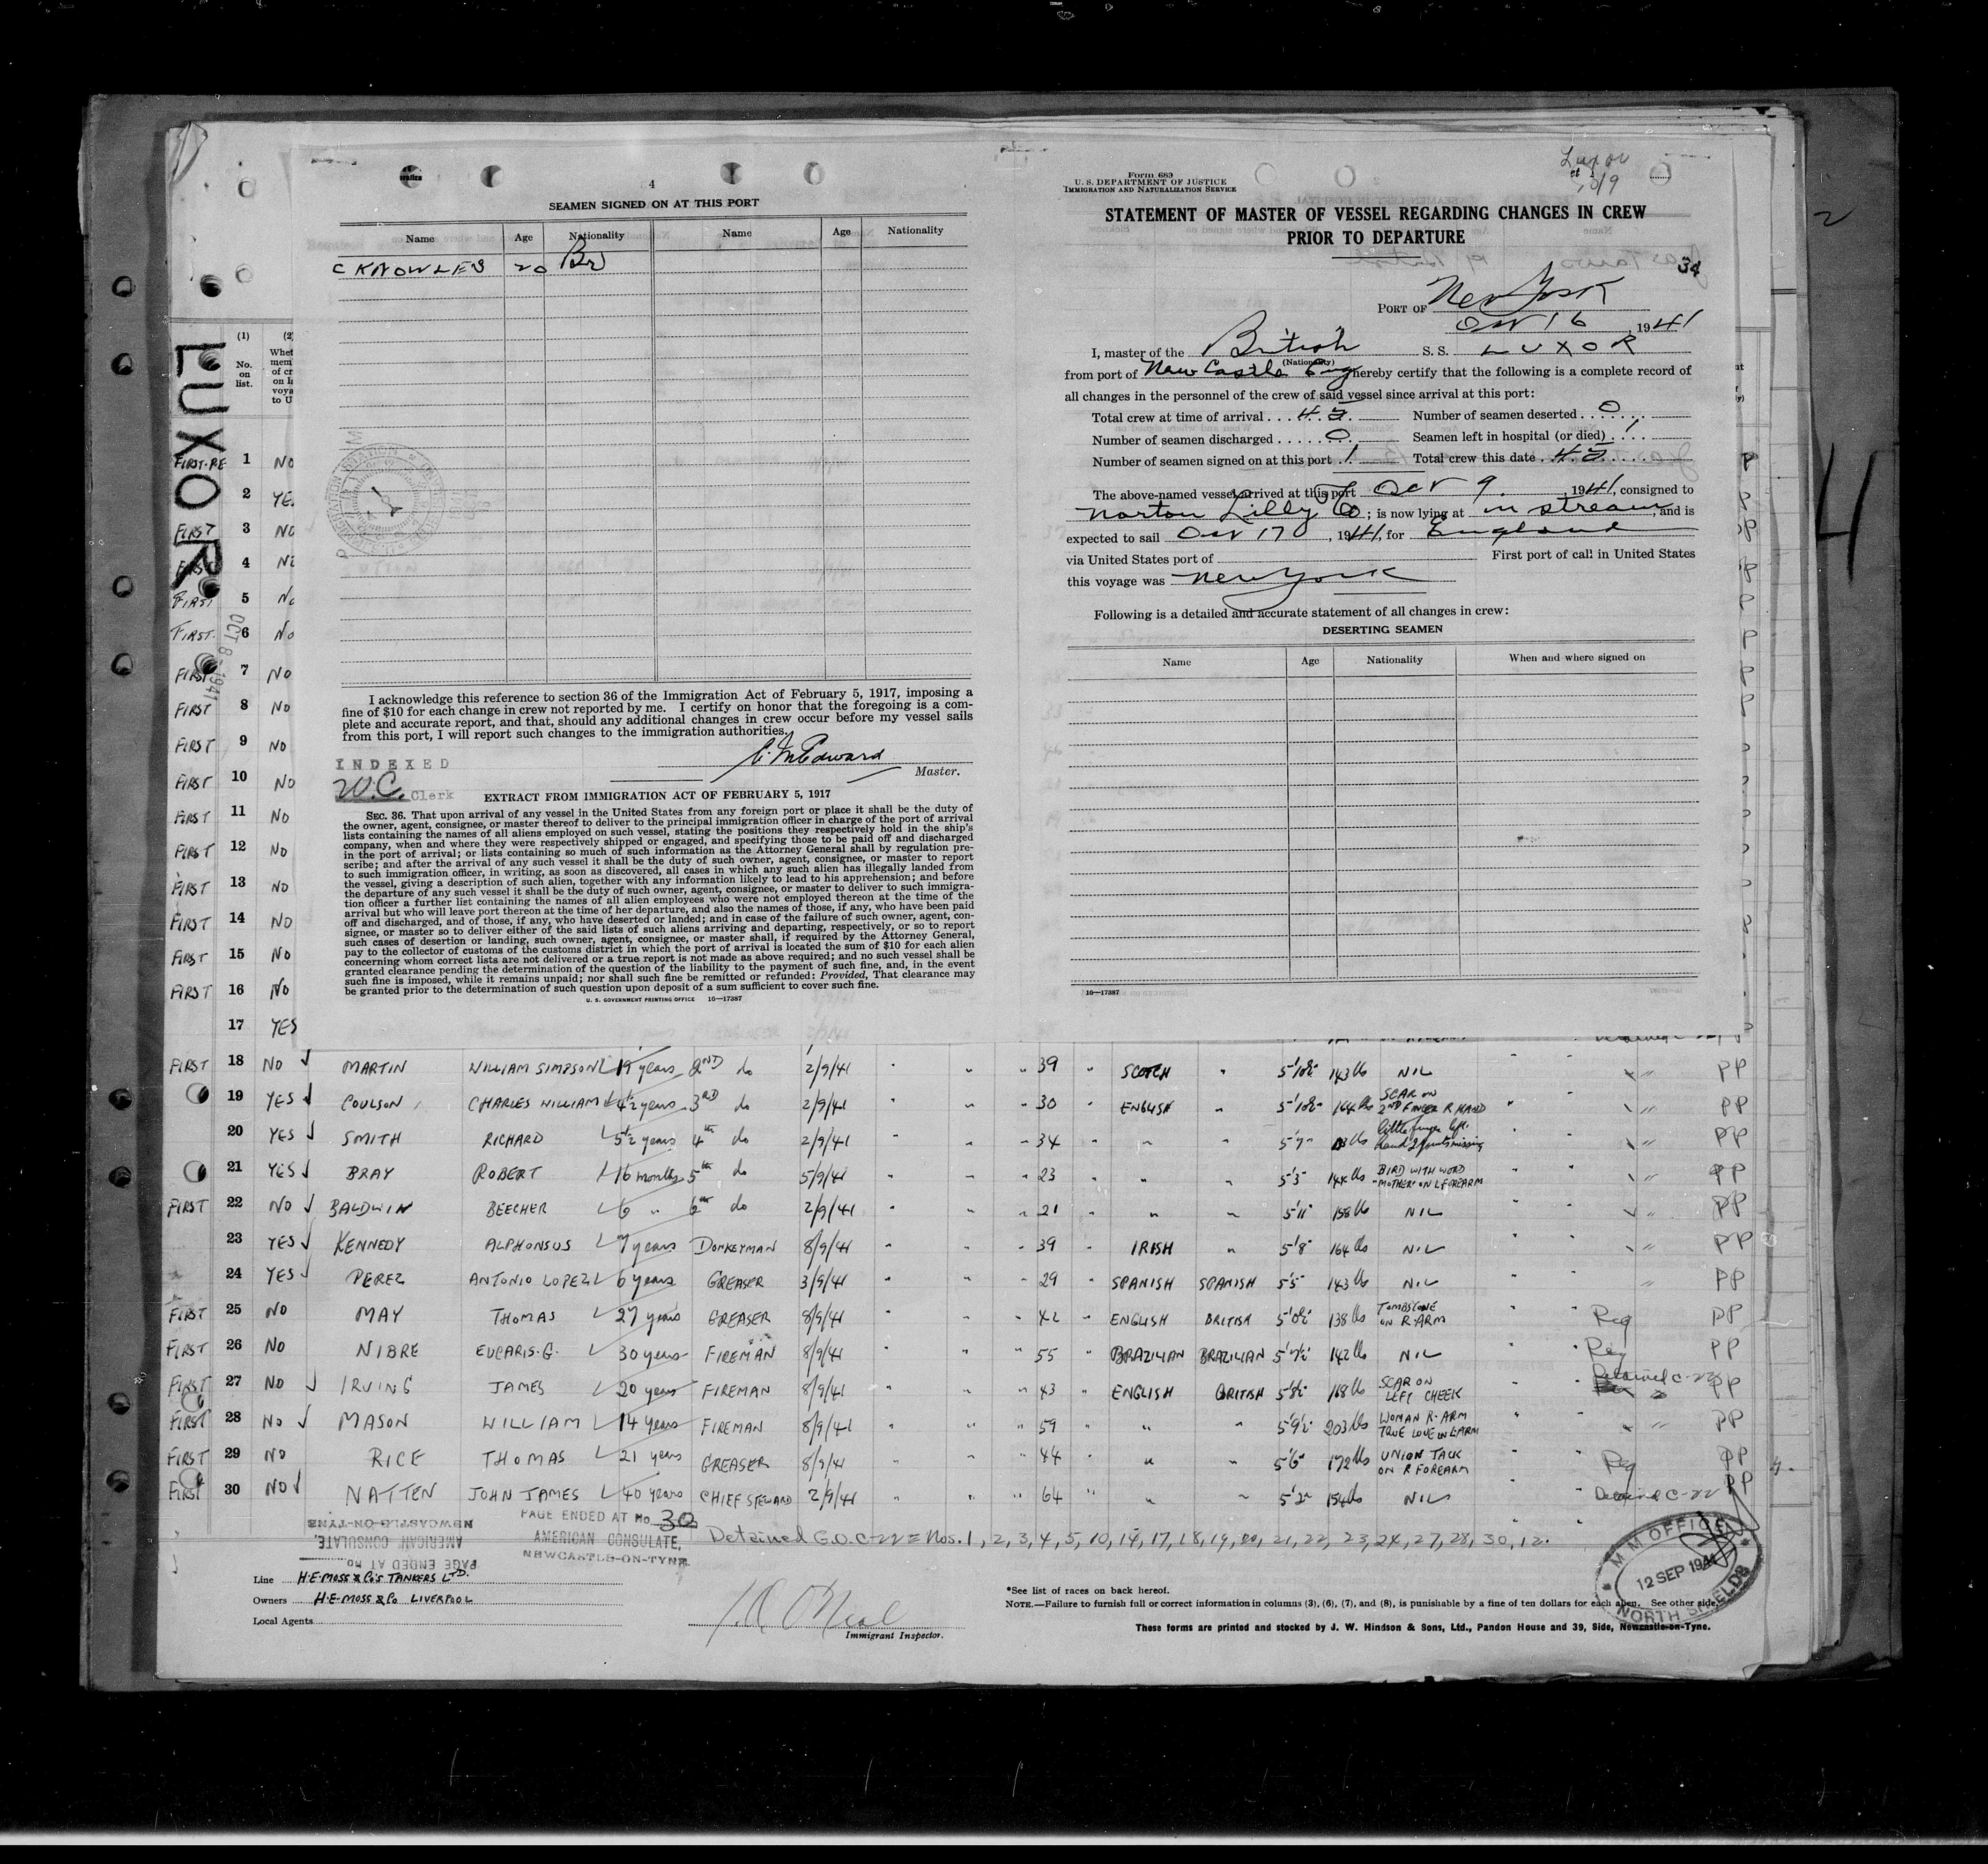 4
SEAMEN SIGNED ON AT THIS PORT
Name Age Nationality Name Age Nationality
C KNOWLES 20 Br
I acknowledge this reference to section 36 of the Immigration Act of February 5, 1917, imposing a
fine of $10 for each change in crew not reported by me. I certify on honor that the foregoing is a com-
plete and accurate report, and that, should any additional changes in crew occur before my vessel sails
from this port, I will report such changes to the immigration authorities.
Master.
INDEXED
W.C. Clerk
EXTRACT FROM IMMIGRATION ACT OF FEBRUARY 5, 1917
SEC. 36. That upon arrival of any vessel in the United States from any foreign port or place it shall be the duty of
the owner, agent, consignee, or master thereof to deliver to the principal immigration officer in charge of the port of arrival
lists containing the names of all aliens employed on such vessel, stating the positions they respectively hold in the ship's
company, when and where they were respectively shipped or engaged, and specifying those to be paid off and discharged
in the port of arrival; or lists containing so much of such information as the Attorney General shall by regulation pre-
scribe; and after the arrival of any such vessel it shall be the duty of such owner, agent, consignee, or master to report
to such immigration officer, in writing, as soon as discovered, all cases in which any such alien has illegally landed from
the vessel, giving a description of such alien, together with any information likely to lead to his apprehension; and before
the departure of any such vessel it shall be the duty of such owner, agent, consignee, or master to deliver to such immigra-
tion officer a further list containing the names of all alien employees who were not employed thereon at the time of the
arrival but who will leave port thereon at the time of her departure, and also the names of those, if any, who have been paid
off and discharged, and of those, if any, who have deserted or landed; and in case of the failure of such owner, agent, con-
signee, or master so to deliver either of the said lists of such aliens arriving and departing, respectively, or so to report
such cases of desertion or landing, such owner, agent, consignee, or master shall, if required by the Attorney General,
pay to the collector of customs of the customs district in which the port of arrival is located the sum of $10 for each alien
concerning whom correct lists are not delivered or a true report is not made as above required; and no such vessel shall be
granted clearance pending the determination of the question of the liability to the payment of such fine, and, in the event
such fine is imposed, while it remains unpaid; nor shall such fine be remitted or refunded: Provided, That clearance may
be granted prior to the determination of such question upon deposit of a sum sufficient to cover such fine.
U. S. GOVERNMENT PRINTING OFFICE 16—17387
Luxor
10/9
Form 689
U. S. DEPARTMENT OF JUSTICE
IMMIGRATION AND NATURALIZATION SERVICE
STATEMENT OF MASTER OF VESSEL REGARDING CHANGES IN CREW
PRIOR TO DEPARTURE
34
PORT OF New York
Oct 16, 1941
I, master of the British S. S. LUXOR
(Nationality)
from port of New Castle Eng hereby certify that the following is a complete record of
all changes in the personnel of the crew of said vessel since arrival at this port:
Total crew at time of arrival . . . 45 Number of seamen deserted . . 0
Number of seamen discharged . . . 0 Seamen left in hospital (or died) . 1
Number of seamen signed on at this port . 1 Total crew this date . 45
The above-named vessel arrived at this port Oct 9, 1941, consigned to
Norton Lilly Co; is now lying at in stream, and is
expected to sail Oct 17, 1941, for England
via United States port of First port of call in United States
this voyage was New York
Following is a detailed and accurate statement of all changes in crew:
DESERTING SEAMEN
Name Age Nationality When and where signed on
16—17387
2
4
LUXOR
OCT 8 1941
(1) (2)
No. on list.
FIRST 1 NO
2 YES
FIRST 3 NO
FIRST 4 NO
FIRST 5 NO
FIRST 6 NO
FIRST 7 NO
FIRST 8 NO
FIRST 9 NO
FIRST 10 NO
FIRST 11 NO
FIRST 12 NO
FIRST 13 NO
FIRST 14 NO
FIRST 15 NO
FIRST 16 NO
17 YES
FIRST 18 NO MARTIN WILLIAM SIMPSON 19 years 2ND do 2/9/41 " " " 39 " SCOTCH " 5'10½" 143 lbs NIL " PP
19 YES COULSON CHARLES WILLIAM 4½ years 3RD do 2/9/41 " " " 30 " ENGLISH " 5'10½" 164 lbs SCAR ON 2ND FINGER R HAND " " PP
20 YES SMITH RICHARD 5½ years 4th do 2/9/41 " " " 34 " " " 5'7" little finger left hand 2 joints missing " PP
21 YES BRAY ROBERT 16 months 5th do 5/9/41 " " " 23 " " " 5'3" 144 lbs BIRD WITH WORD "MOTHER" ON L FOREARM " " PP
FIRST 22 NO BALDWIN BEECHER 6 " 6th do 2/9/41 " " " 21 " " " 5'11" 158 lbs NIL " " PP
23 YES KENNEDY ALPHONSUS 7 years DONKEYMAN 8/9/41 " " " 39 " IRISH " 5'8" 164 lbs NIL " " PP
24 YES PEREZ ANTONIO LOPEZ 6 years GREASER 3/9/41 " " " 29 " SPANISH SPANISH 5'5" 143 lbs NIL " " PP
FIRST 25 NO MAY THOMAS 27 years GREASER 8/9/41 " " 42 " ENGLISH BRITISH 138 lbs TOMBSTONE ON R. ARM " " Reg PP
FIRST 26 NO NIBRE EUCARIS. G. 30 years FIREMAN 8/9/41 " " " 55 " BRAZILIAN BRAZILIAN 142 lbs NIL " " Reg PP
FIRST 27 NO IRVING JAMES 20 years FIREMAN 8/9/41 " " " 43 " ENGLISH BRITISH 5'8½" 168 lbs SCAR ON LEFT CHEEK Detained C-22 PP
FIRST 28 NO MASON WILLIAM 14 years FIREMAN 8/9/41 " " " 59 " " " 5'9½" 203 lbs WOMAN R. ARM TRUE LOVE ON L ARM " " PP
FIRST 29 NO RICE THOMAS 21 years GREASER 8/9/41 " " " 44 " " " 5'6" 172 lbs UNION JACK ON R FOREARM " " Reg PP
FIRST 30 NO NATTEN JOHN JAMES 40 years CHIEF STEWARD 2/9/41 " " " 64 " " " 5'2" 154 lbs NIL " " Detained C-22 PP
PAGE ENDED AT No 30
AMERICAN CONSULATE,
NEWCASTLE-ON-TYNE
Detained G.O. C-22 = Nos. 1, 2, 3, 4, 5, 10, 14, 17, 18, 19, 20, 21, 22, 23, 24, 27, 28, 30, 12.
Line H. E. MOSS & Co's TANKERS LTD.
Owners H. E. MOSS & Co LIVERPOOL
Local Agents
Immigrant Inspector.
*See list of races on back hereof.
NOTE.—Failure to furnish full or correct information in columns (3), (6), (7), and (8), is punishable by a fine of ten dollars for each alien. See other side.
These forms are printed and stocked by J. W. Hindson & Sons, Ltd., Pandon House and 39, Side, Newcastle-on-Tyne.
M M OFFICE
12 SEP 1941
NORTH SHIELDS